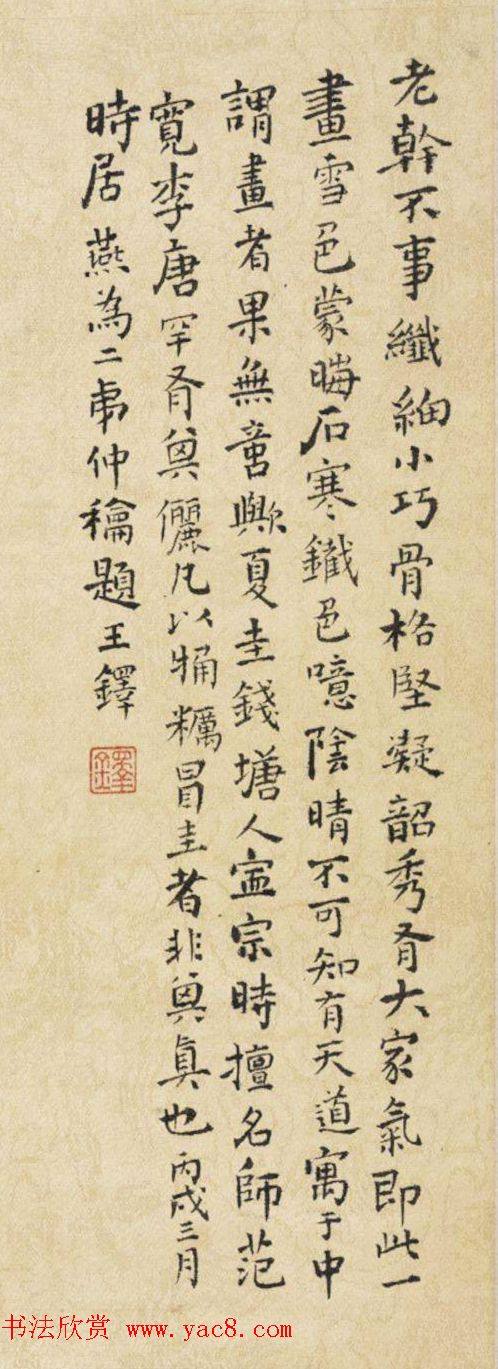 老幹不事纖細小巧骨格堅凝韶秀有大家氣即此一
畫雪色蒙晦石寒鐵色噫陰晴不可知有天道寓于中
謂畫者果無歟夏圭錢塘人寧宗時擅名師范
寬李唐罕有其儷凡以觕糲冒圭者非其真也丙戌三月
時居燕為二仲龢題王鐸
鐸
书法欣赏 www.yac8.com